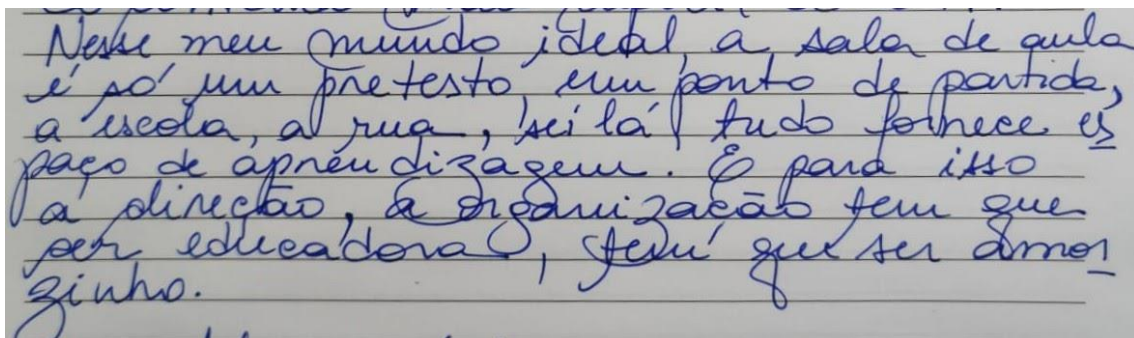 Nesse meu mundo ideal, a sala de aula
é só um pretesto, um ponto de partida,
a escola, a rua, sei lá, tudo fornece es
paço de aprendizagem. E para isso
a direção, a organização tem que
ser educadora, tem que ser amor
zinho.